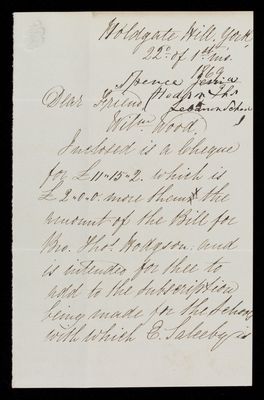 Holdgate Hill, York,
22º of 1st mo.
1869.
Spence
Hodgson Ths
Lebanon School
Dear Friend
Wilm. Wood,
Inclosed is a Cheque
for £11-15-2. which is
£2-0-0. more than the
amount of the Bill for
Bro. Thos. Hodgson; and
is intended for thee to
add to the subscription
being made for the School
with which E. Saleeby is